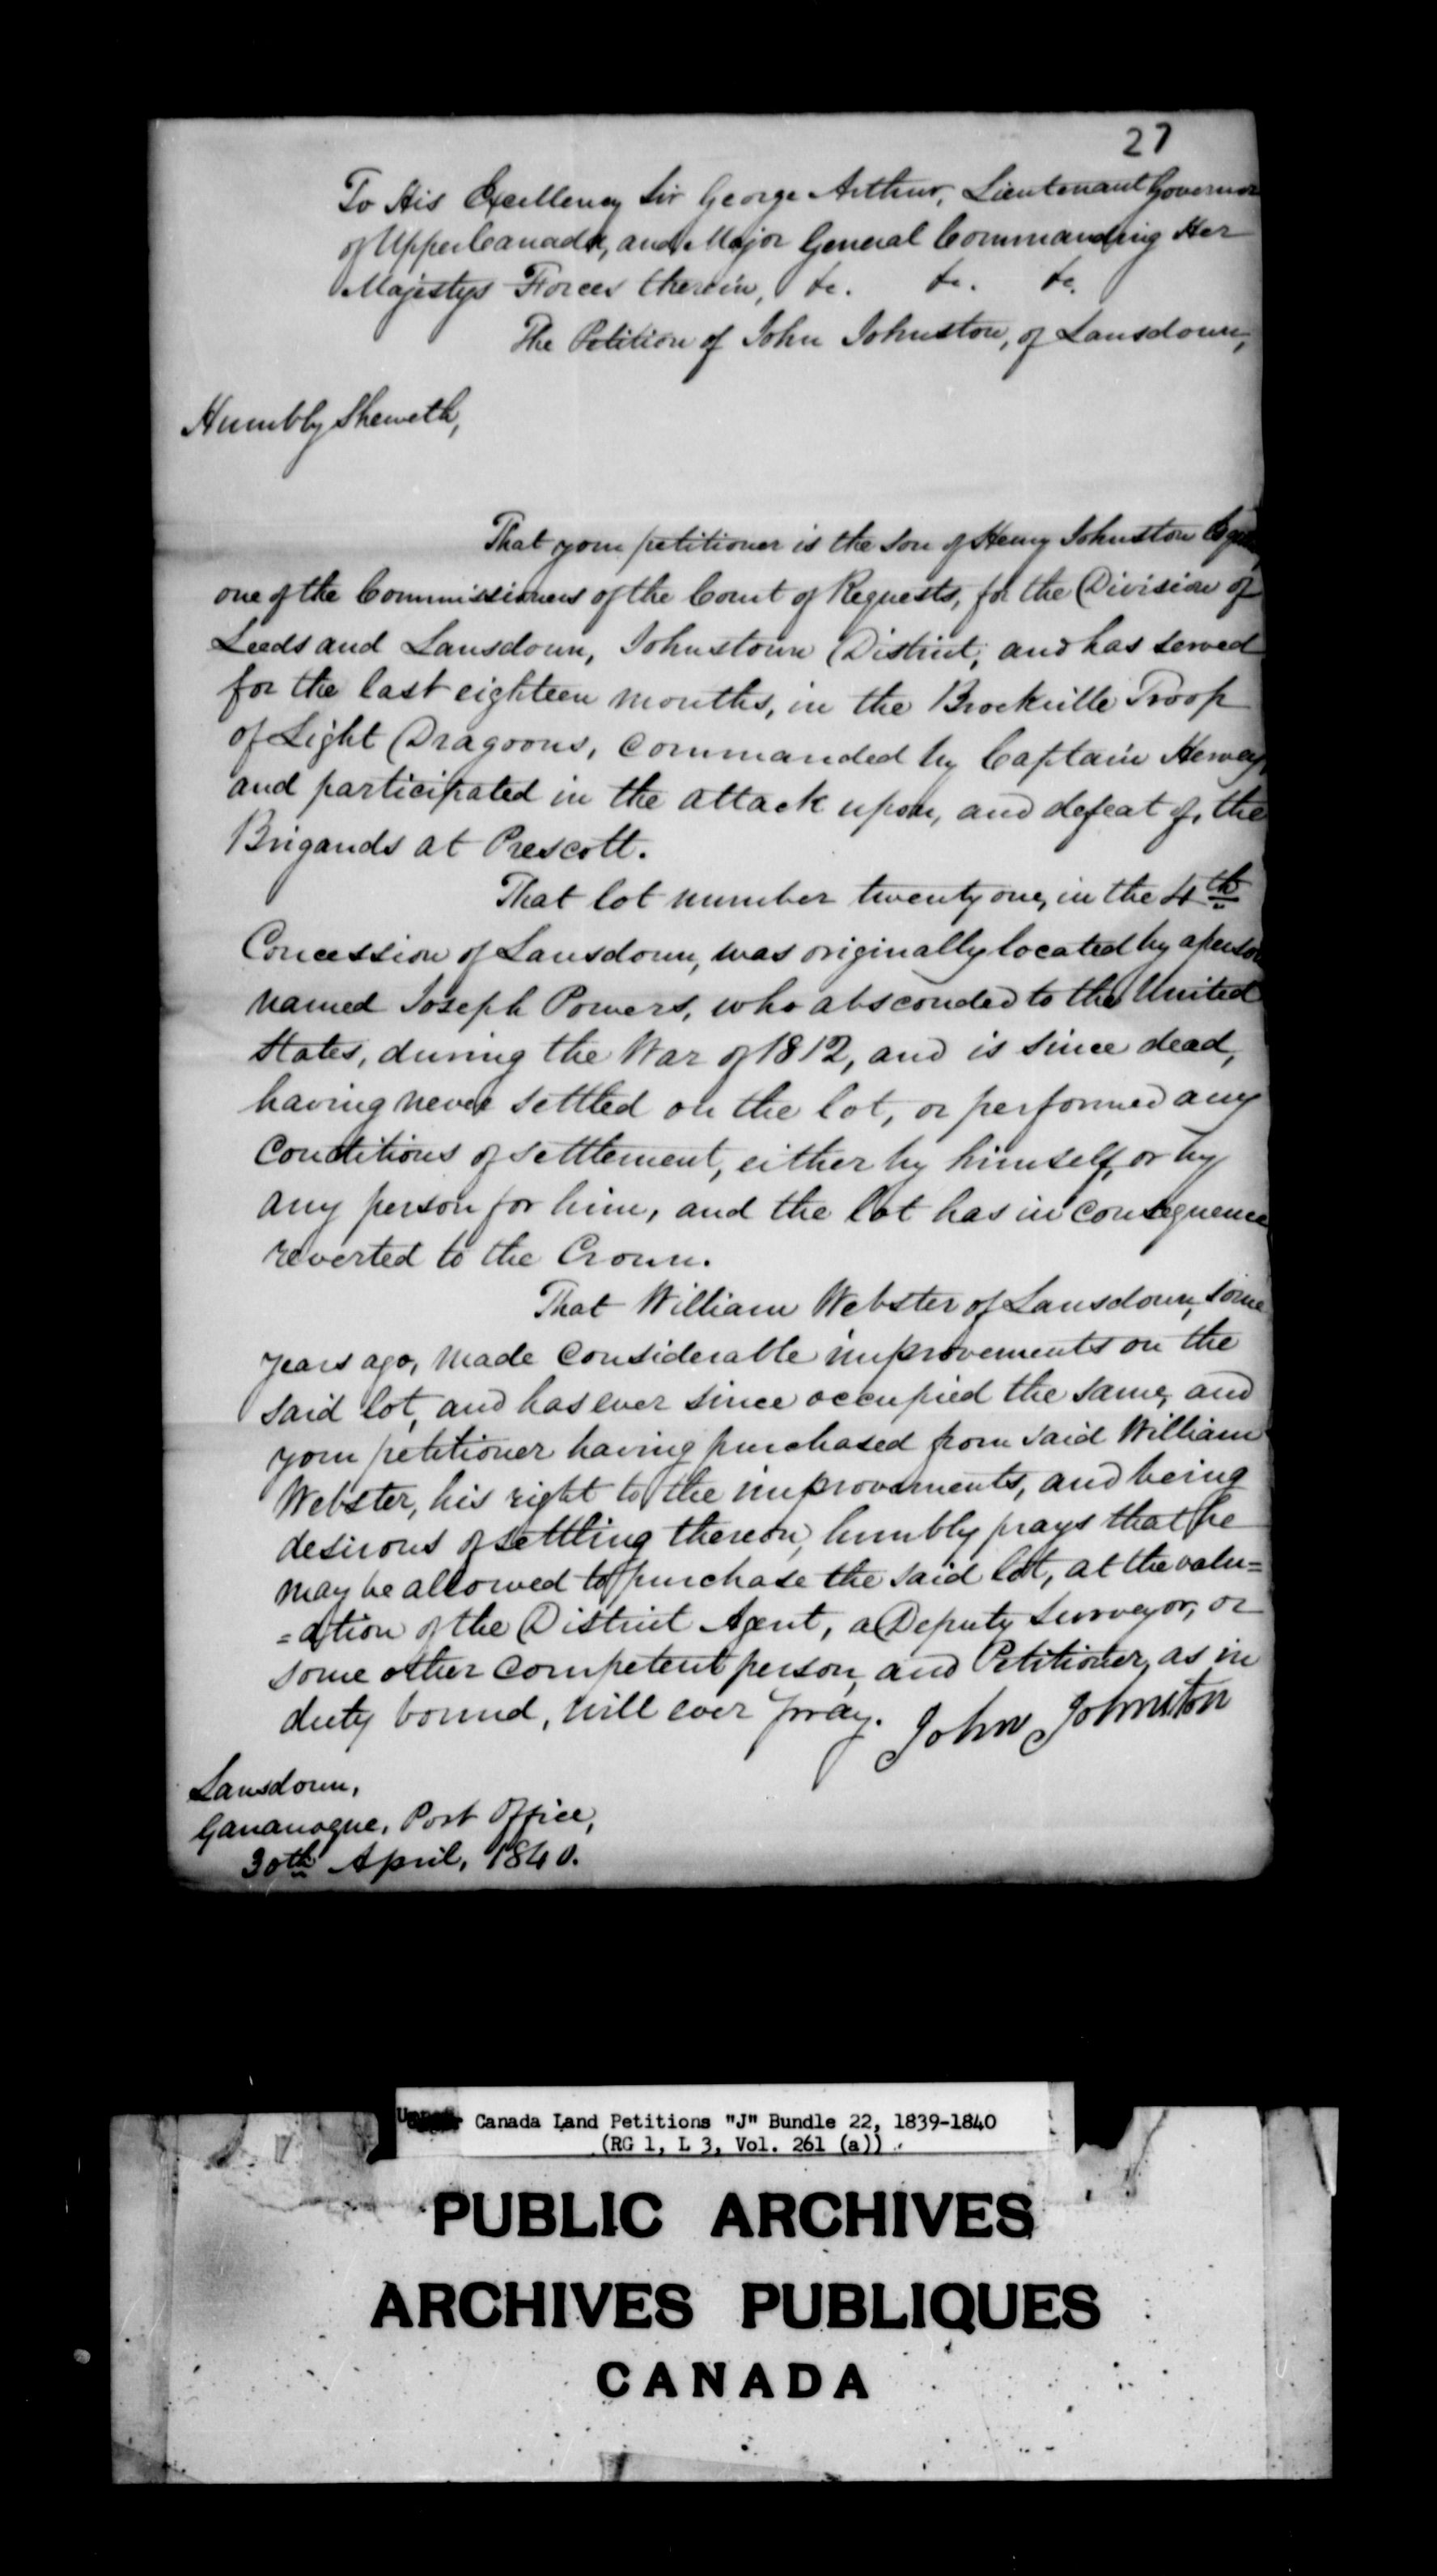 27
To His Excellency Sir George Arthur, Lieutenant Governor
of Upper Canada, and Major General Commanding Her
Majestys Forces therein, &c. &c. &c.
The Petition of John Johnston, of Lansdown,
Humbly Sheweth,
That your petitioner is the son of Henry Johnston
one of the Commissioners of the Court of Requests, for the Division of
Leeds and Lansdown, Johnstown District, and has served
for the last eighteen months, in the Brockville Troop
of Light Dragoons, commanded by Captain
and participated in the attack upon, and defeat of, the
Brigands at Prescott.
That lot number twenty one, in the 4th
Concession of Lansdown, was originally located by a person
named Joseph Powers, who absconded to the United
States, during the War of 1812, and is since dead,
having never settled on the lot, or performed any
conditions of settlement, either by himself, or by
any person for him, and the lot has in consequence
reverted to the Crown.
That William Webster of Lansdown, some
years ago, made considerable improvements on the
said lot, and has ever since occupied the same, and
your petitioner having purchased from said William
Webster, his right to the improvements, and being
desirous of settling thereon, humbly prays that he
may be allowed to purchase the said lot, at the valu=
=ation of the District Agent, a Deputy Surveyor, or
some other competent person, and Petitioner, as in
duty bound, will ever pray. John Johnston
Lansdown,
Gananoque, Post Office,
30th April, 1840.
Canada Land Petitions "J" Bundle 22, 1839-1840
(RG 1, L 3, Vol. 261 (a))
PUBLIC ARCHIVES
ARCHIVES PUBLIQUES
CANADA